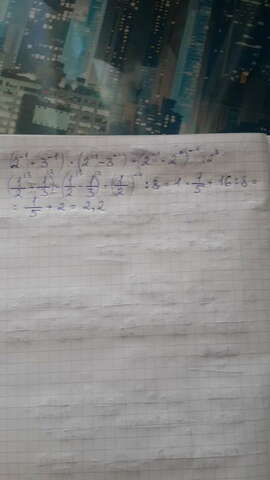 (2⁻¹ + 3⁻¹) · (2⁻¹ - 3⁻¹)⁻¹ + (2⁻¹ · 2⁰)⁻⁴ : 2³
(1/2 + 1/3) · (1/2 - 1/3) + (1/2)⁻⁴ : 8 = 1 · 1/5 + 16 : 8 =
= 1/5 + 2 = 2,2